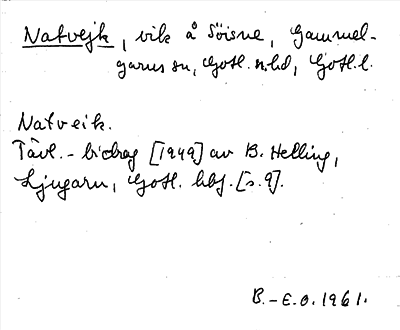 Natvejk, vik å Föisne, Gammel-
garns sn, Gotl. n. hd, Gotl. l.
Natveik.
Tävl.-bidrag [1949] av B. Helling,
Ljugarn, Gotl. hbf. [s. 9].
B.-E.O. 1961.